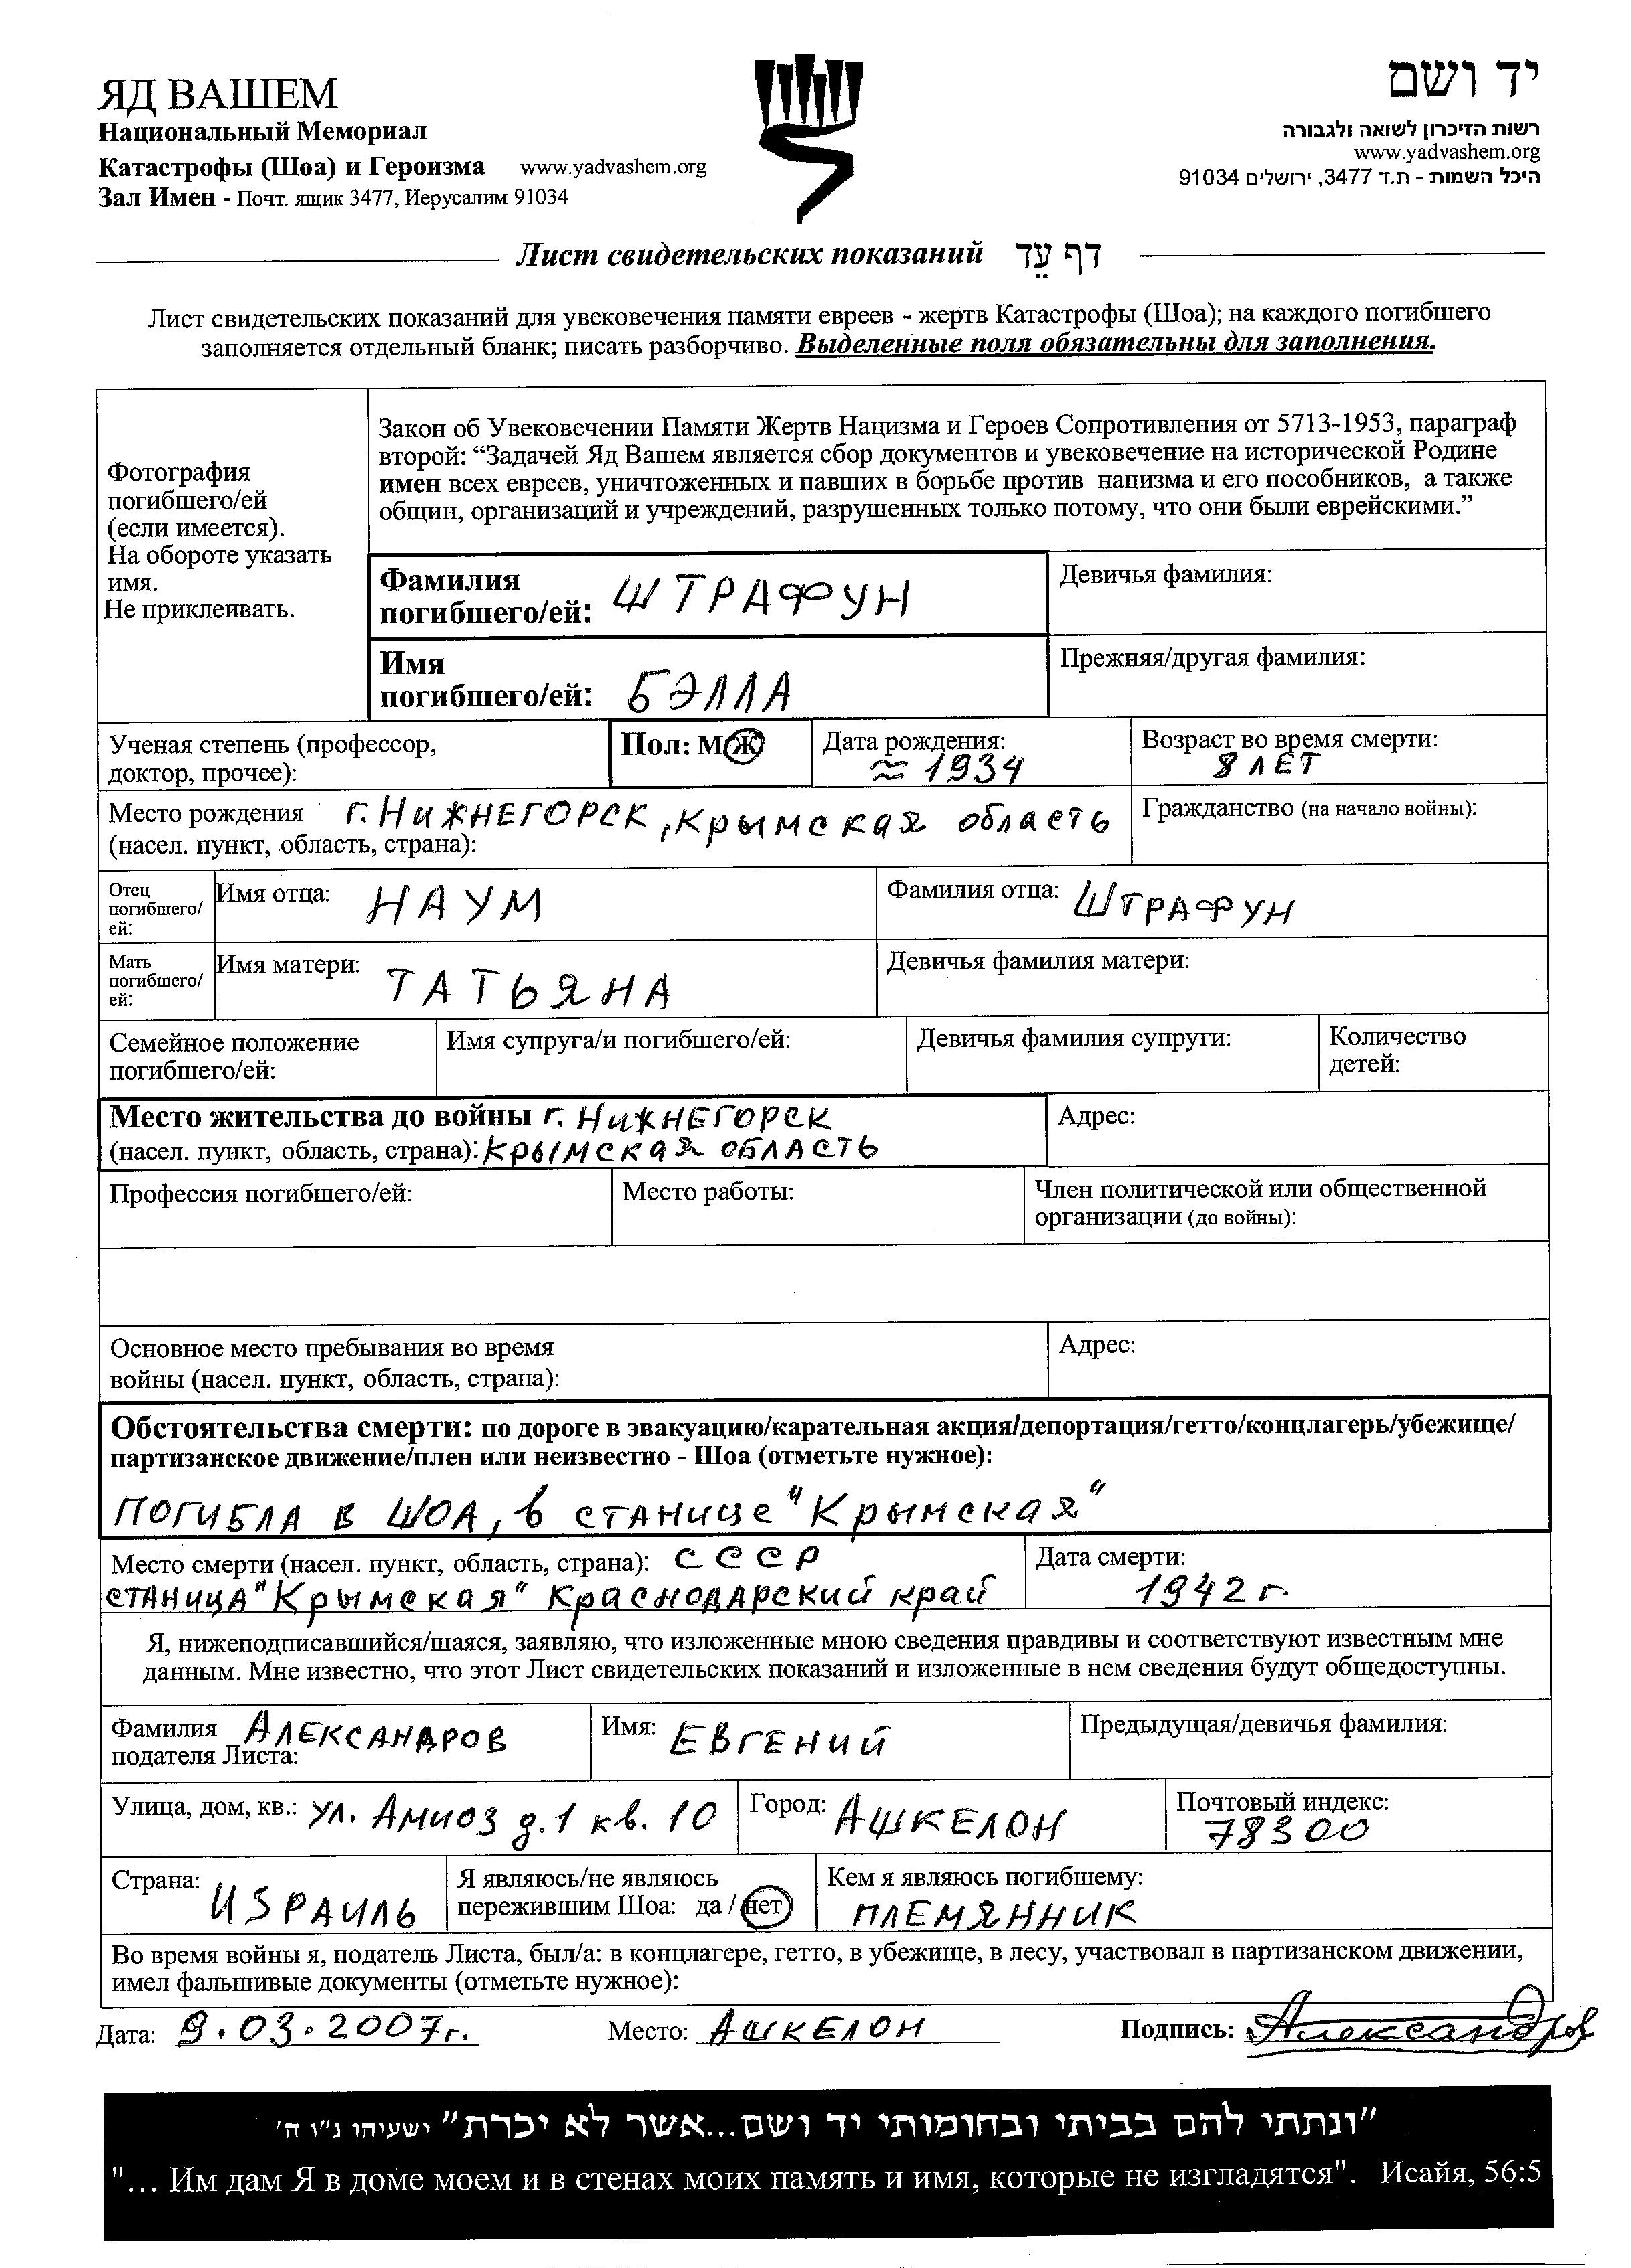 ЯД ВАШЕМ
Национальный Мемориал
Катастрофы (Шоа) и Героизма www.yadvashem.org
Зал Имен - Почт. ящик 3477, Иерусалим 91034
יד ושם
רשות הזיכרון לשואה ולגבורה
www.yadvashem.org
היכל השמות - ת.ד 3477, ירושלים 91034
Лист свидетельских показаний דף עֵד
Лист свидетельских показаний для увековечения памяти евреев - жертв Катастрофы (Шоа); на каждого погибшего
заполняется отдельный бланк; писать разборчиво. Выделенные поля обязательны для заполнения.
Фотография
погибшего/ей
(если имеется).
На обороте указать
имя.
Не приклеивать.
Закон об Увековечении Памяти Жертв Нацизма и Героев Сопротивления от 5713-1953, параграф
второй: “Задачей Яд Вашем является сбор документов и увековечение на исторической Родине
имен всех евреев, уничтоженных и павших в борьбе против нацизма и его пособников, а также
общин, организаций и учреждений, разрушенных только потому, что они были еврейскими.”
Фамилия
погибшего/ей: ШТРАФУН
Девичья фамилия:
Имя
погибшего/ей: БЭЛЛА
Прежняя/другая фамилия:
Ученая степень (профессор,
доктор, прочее):
Пол: М Ж
Дата рождения:
≈ 1934
Возраст во время смерти:
8 ЛЕТ
Место рождения г. НИЖНЕГОРСК, Крымская область
(насел. пункт, область, страна):
Гражданство (на начало войны):
Отец
погибшего/
ей:
Имя отца: НАУМ
Фамилия отца: ШТРАФУН
Мать
погибшего/
ей:
Имя матери: ТАТЬЯНА
Девичья фамилия матери:
Семейное положение
погибшего/ей:
Имя супруга/и погибшего/ей:
Девичья фамилия супруги:
Количество
детей:
Место жительства до войны г. НИЖНЕГОРСК
(насел. пункт, область, страна): КРЫМСКАЯ ОБЛАСТЬ
Адрес:
Профессия погибшего/ей:
Место работы:
Член политической или общественной
организации (до войны):
Основное место пребывания во время
войны (насел. пункт, область, страна):
Адрес:
Обстоятельства смерти: по дороге в эвакуацию/карательная акция/депортация/гетто/концлагерь/убежище/
партизанское движение/плен или неизвестно - Шоа (отметьте нужное):
ПОГИБЛА В ШОА, в станице "Крымская"
Место смерти (насел. пункт, область, страна): СССР
СТАНИЦА "Крымская" Краснодарский край
Дата смерти:
1942 г.
Я, нижеподписавшийся/шаяся, заявляю, что изложенные мною сведения правдивы и соответствуют известным мне
данным. Мне известно, что этот Лист свидетельских показаний и изложенные в нем сведения будут общедоступны.
Фамилия АЛЕКСАНДРОВ
подателя Листа:
Имя: ЕВГЕНИЙ
Предыдущая/девичья фамилия:
Улица, дом, кв.: ул. Амиоз д. 1 кв. 10
Город: АШКЕЛОН
Почтовый индекс:
78300
Страна: ИЗРАИЛЬ
Я являюсь/не являюсь
пережившим Шоа: да / нет
Кем я являюсь погибшему:
ПЛЕМЯННИК
Во время войны я, податель Листа, был/а: в концлагере, гетто, в убежище, в лесу, участвовал в партизанском движении,
имел фальшивые документы (отметьте нужное):
Дата: 9.03.2007г. Место: АШКЕЛОН Подпись: Александров
"ונתתי להם בביתי ובחומותי יד ושם...אשר לא יכרת" ישעיהו נ"ו ה'
"... Им дам Я в доме моем и в стенах моих память и имя, которые не изгладятся". Исайя, 56:5